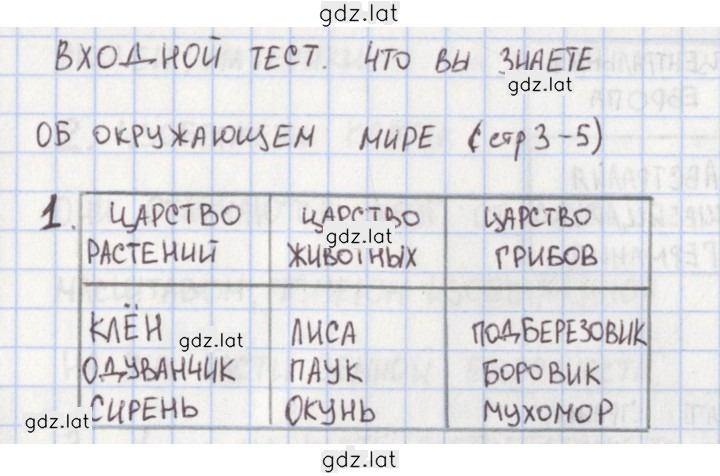 gdz.lat
ВХОДНОЙ ТЕСТ. ЧТО ВЫ ЗНАЕТЕ
gdz.lat
ОБ ОКРУЖАЮЩЕМ МИРЕ (стр 3-5)
1. ЦАРСТВО РАСТЕНИЙ ЦАРСТВО ЖИВОТНЫХ ЦАРСТВО ГРИБОВ
gdz.lat
КЛЁН ЛИСА ПОДБЕРЕЗОВИК
gdz.lat gdz.lat
ОДУВАНЧИК ПАУК БОРОВИК
СИРЕНЬ ОКУНЬ МУХОМОР
gdz.lat gdz.lat
gdz.lat